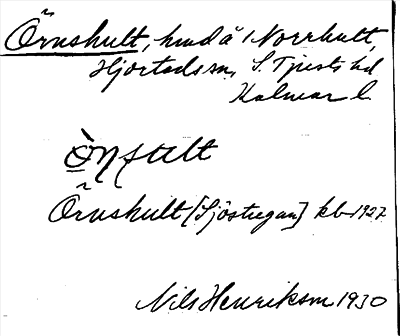 Örnshult, hmd å Norrhult,
Hjorteds sn, S. Tjusts hd
Kalmar l.
Örnshult [Sjöstugan] kb 1927
Nils Henrikson 1930